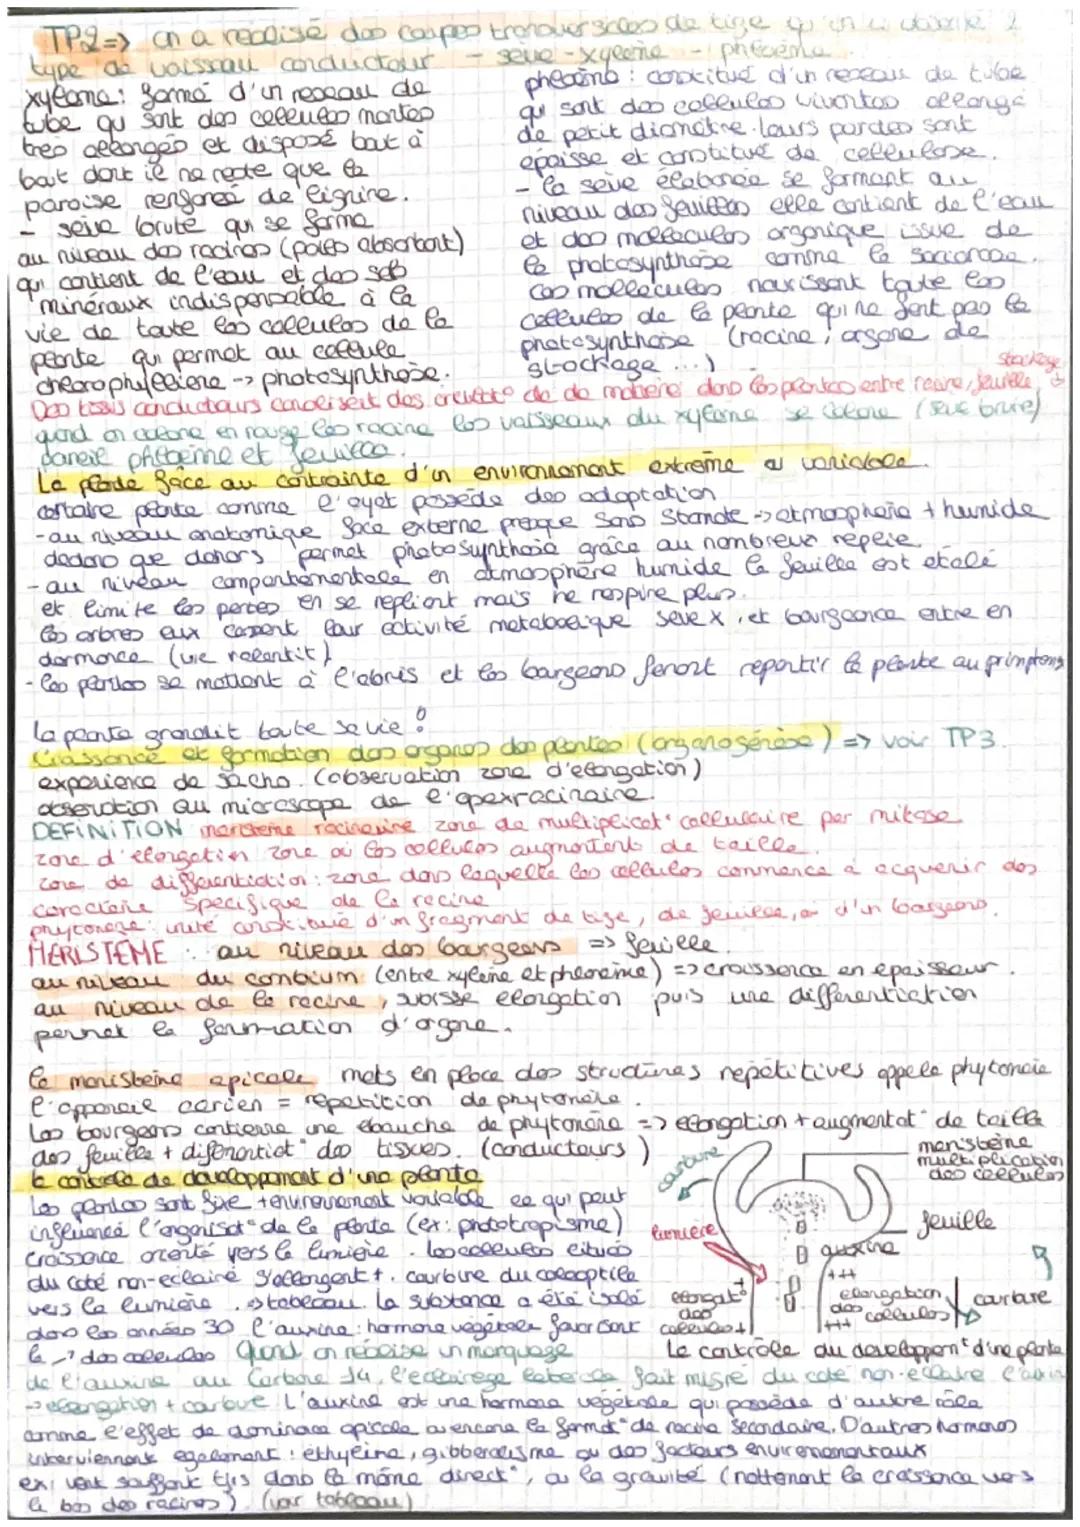 TP2 => on a réalisé des coupes transversales de tige
type de vaisseau conducteur - sève - xyleme - phloème
xyleme: formé d'un reseau de
tube qu sont des cellules mortes
tres allongés et disposé bout à
bout dont il ne reste que la
paroise renforcé de lignine.
- seive brute qui se forme
au niveau des racines (poils absorbant)
qui contient de l'eau et des sels
minéraux indispensable à la
vie de toute les cellules de la
plante qui permet au cellule
chlorophyllienne -> photosynthèse.
phloème : constitué d'un reseau de tube
qui sont des cellules vivantes allongé
de petit diametre. leurs paroies sont
epaisse et constitué de cellulose.
- la seive élaborée se formant au
niveau des feuilles elle contient de l'eau
et des molécules organique issue de
la photosynthèse comme le saccarose.
Ces molécules nourissent toute les
cellules de la plante qui ne font pas la
photosynthèse (racine, organe de
stockage ...)
Des tissus conducteurs canalisent des de matière dans les plantes entre racine, feuille, stockage
quand on colore en rouge les racine les vaisseaux du xyleme se colore (seve brute)
pareil phloème et feuilles.
La plante face au contrainte d'un environnement extreme et variable.
certaine plante comme l'oyat possède des adaptation
- au niveau anatomique face externe presque sans stomate -> atmosphère + humide
dedans que dehors permet photosynthèse grâce au nombreux replie
- au niveau comportementale en atmosphère humide la feuille est etalé
et limite les pertes en se repliant mais ne respire plus.
les arbres eux cessent leur activité metabolique seve x, et bourgeonce entre en
dormance (vie ralentit)
- les plantes se mettent à l'abris et les bourgeons feront repartir la plante au primptemps
la plante grandit toute sa vie !
Croissance et formation des organes des plantes (organogénèse) => voir TP3.
experience de sachs. (observation zone d'elongation)
observation au microscope de l'apex racinaire.
DEFINITION meristeme racinaire zone de multiplicat° cellulaire par mitose
zone d'elongation zone où les cellules augmentent de taille.
zone de differentiation : zone dans laquelle les cellules commence à acquerir des
caractère specifique de la racine
phytomere : unité constitué d'un fragment de tige, de feuille, d'un bourgeons.
MERISTEME : au niveau des bourgeons => feuille
au niveau du cambium (entre xyleme et phloeme) => croissance en epaisseur.
au niveau de la racine, subisse elongation puis une differentiation
permet la formation d'organe.
le meristeme apicale mets en place des structures répétitives appele phytomère
l'appareil aerien = repetition de phytomère.
Les bourgeons contienne une ebauche de phytomère => elongation + augmentat° de taille
des feuille + diferentiat° des tissues. (conducteurs)
le controle de developpement d'une plante
Les plantes sont fixe + environnement variable ce qui peut
influencé l'organisat° de la plante (ex: phototropisme)
Croissance orienté vers la lumiere. les cellules situés
du coté non-eclairé s'allongent +. courbure du coleoptile
vers la lumière. => tableau. la substance a été isolé
dans les années 30 l'auxine : hormone végétale favorisant
la des cellules Quand on réalise un marquage
de l'auxine au Carbone 14, l'eclairage laterale fait migré du coté non-eclairé l'auxin
-> elongation + courbure L'auxine est une hormone végétale qui possède d'autre role
comme l'effet de dominance apicale ou encore la format° de racine secondaire. D'autres hormones
interviennent egalement : éthylène, ou des facteurs environnementaux
ex, vent soufflant tjrs dans la même direct°, ou la gravité (maintenant la croissance vers
le bas des racines). (voir tableau)
courbure
lumière
meristeme
multiplication
des cellules
feuille
auxine
+
elongat°
des
cellules +
+++
elongation
des cellules
+++
courbure
Le contrôle du developpemt d'une plante